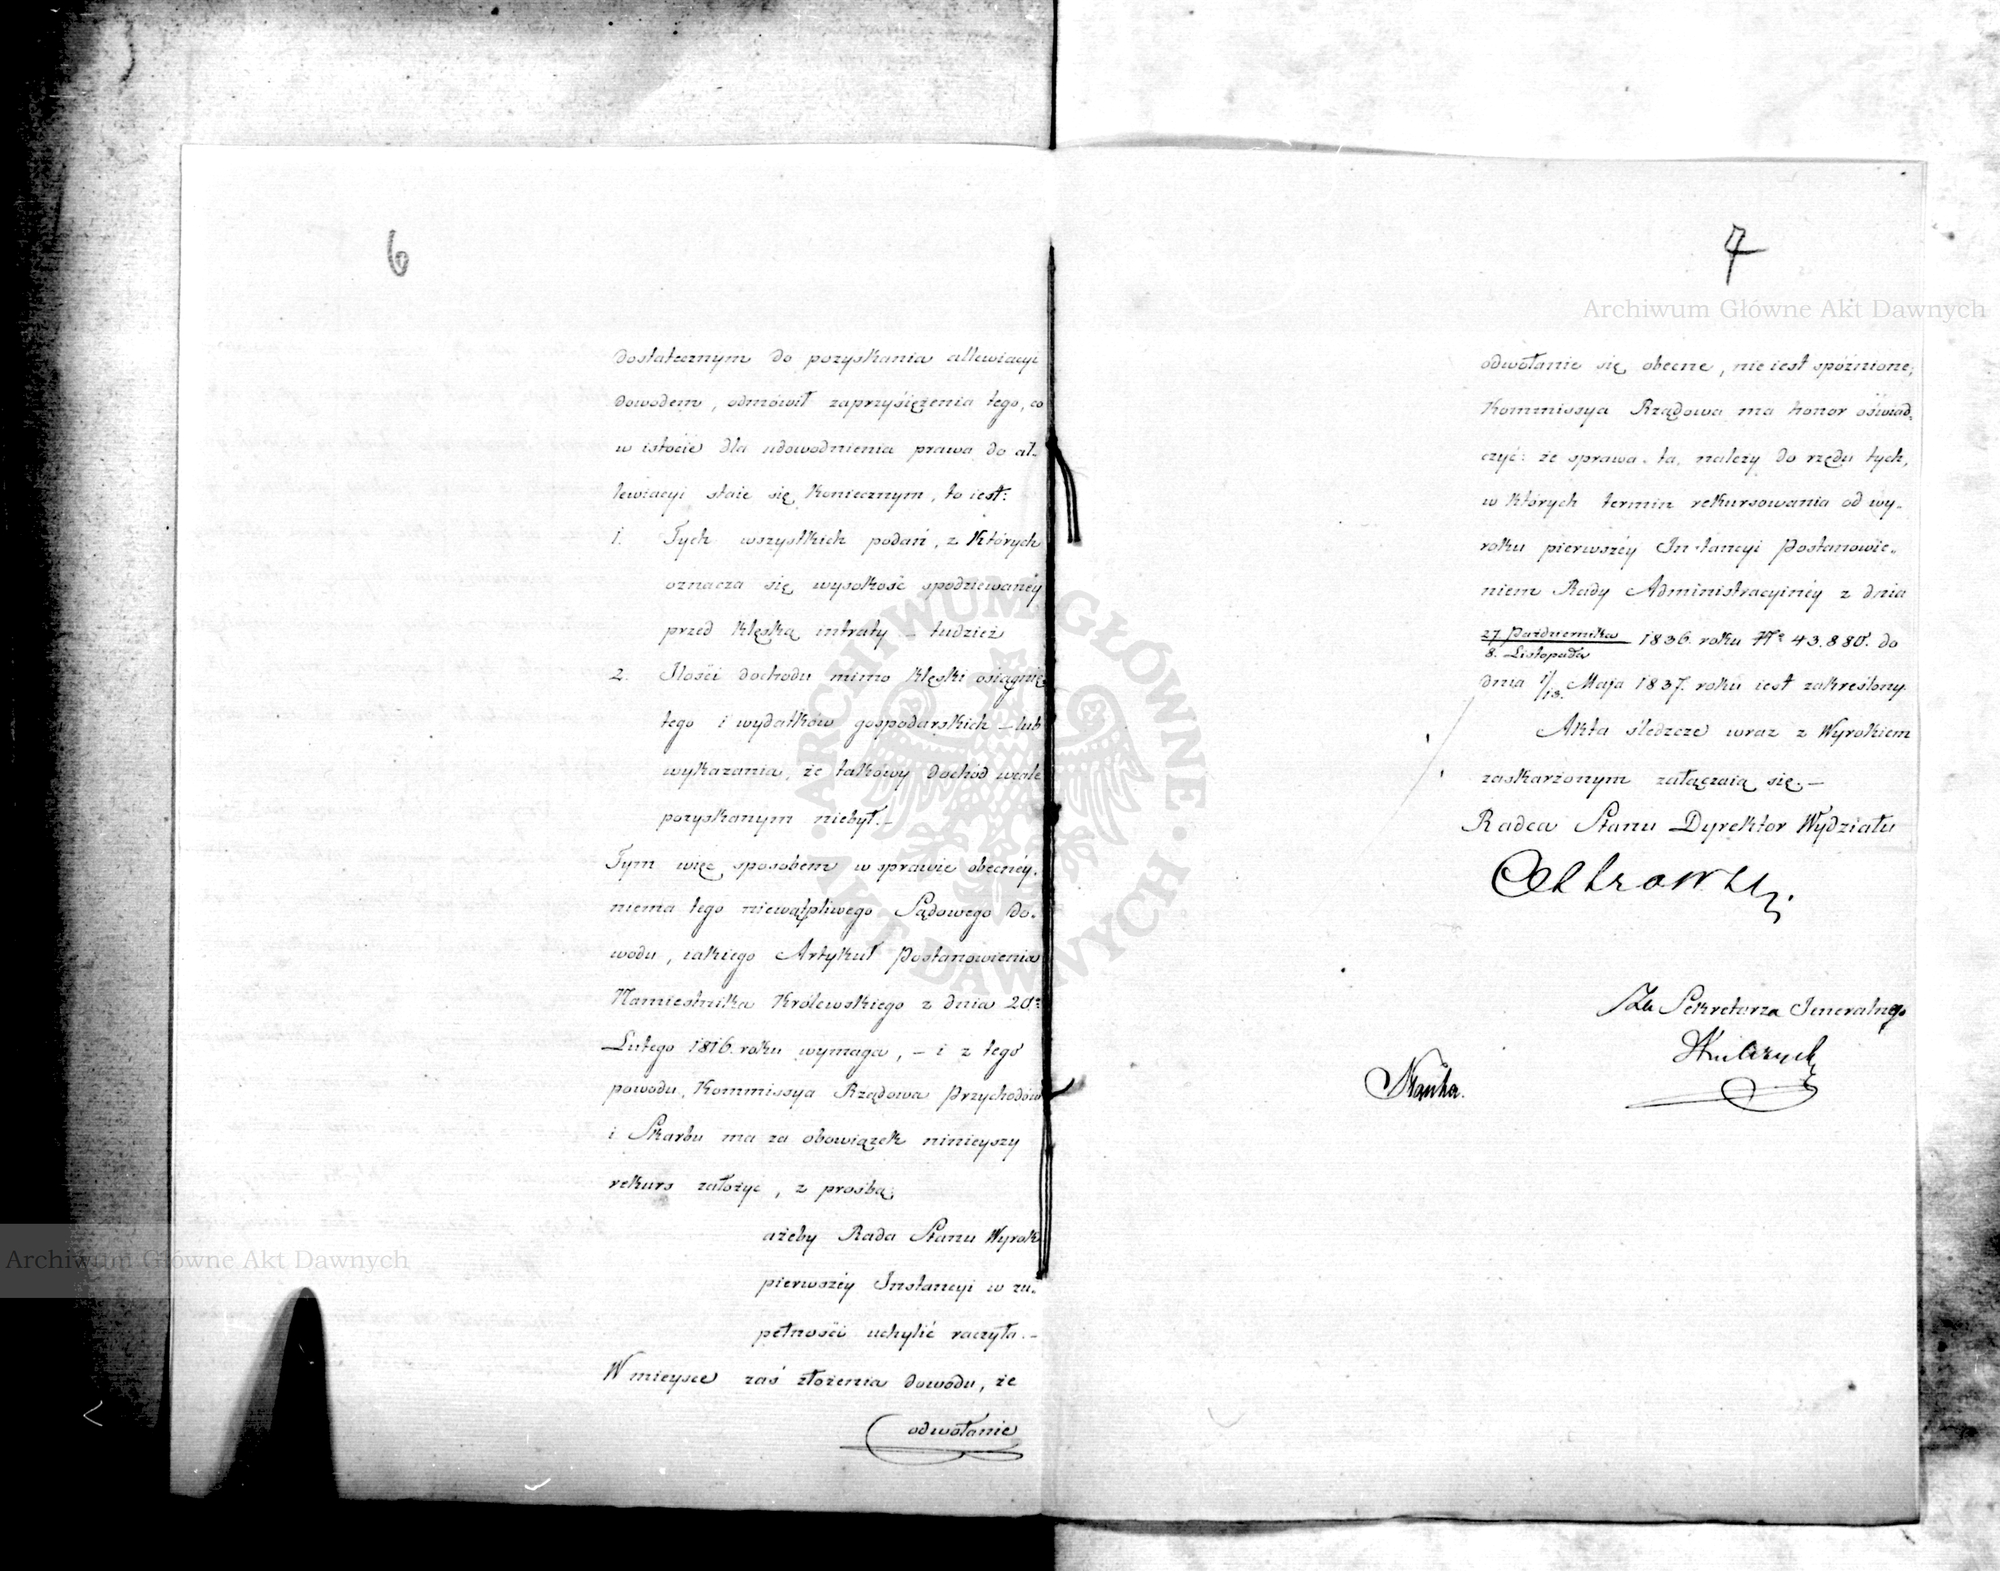 6
dostatecznym do pozyskania allewiacyi
dowodem, odmówił zaprzysiężenia tego, co
w istocie dla udowodnienia prawa do al„
lewiacyi staie się koniecznym, to iest:
1. Tych wszystkich podań, z których
oznacza się wysokość spodziewanéy
przed klęską intraty – tudzież
2. Ilości dochodu mimo klęski osiągnię„
tego i wydatków gospodarskich – lub
wykazania, że takowy dochód wcale
pozyskanym niebył. –
Tym więc sposobem w sprawie obecnéy,
niema tego niewątpliwego Sądowego Do„
wodu, iakiego Artykuł Postanowienia
Namiestnika Królewskiego z dnia 20º
Lutego 1816. roku wymaga, – i z tego
powodu, Kommissya Rządowa Przychodów
i Skarbu ma za obowiązek ninieyszy
rekurs założyć, z prośbą,
ażeby Rada Stanu Wyrok
pierwszéy Instancyi w zu„
pełności uchylić raczyła. –
W mieysce zaś złożenia dowodu, że
odwołanie
7
odwołanie się obecne, nie iest spóźnione,
Kommissya Rządowa ma honor oświad„
czyć: że sprawa ta, należy do rzędu tych,
w których termin rekursowania od wy„
roku pierwszéy Instancyi Postanowie„
niem Rady Administracyinéy z dnia
27 Października / 8. Listopada 1836. roku Nº 43.880. do
dnia 1/13. Maja 1837. roku iest zakreślony.
Akta śledcze wraz z Wyrokiem
zaskarżonym załączaią się. –
Radca Stanu Dyrektor Wydziału
Za Sekretarza Jeneralnego
Archiwum Główne Akt Dawnych
Archiwum Główne Akt Dawnych
ARCHIWUM GŁÓWNE · AKT DAWNYCH ·